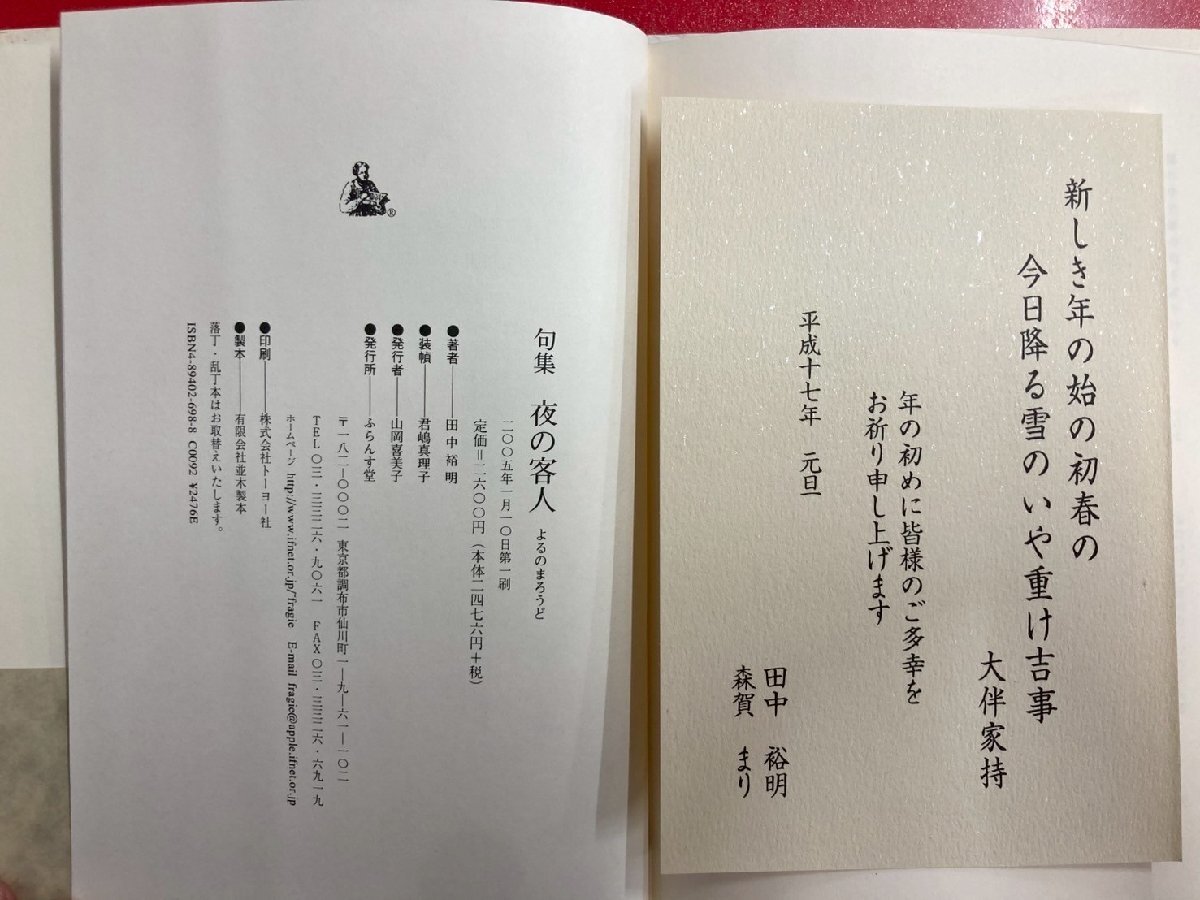 新しき年の始の初春の
今日降る雪のいや重け吉事
大伴家持
年の初めに皆様のご多幸を
お祈り申し上げます
平成十七年 元旦
田中 裕明
森賀 まり
句集 夜の客人 よるのまろうど
二〇〇五年一月一〇日第一刷
定価=二六〇〇円(本体二四七六円+税)
●著者──田中裕明
●装幀──君嶋真理子
●発行者──山岡喜美子
●発行所──ふらんす堂
〒一八二-〇〇〇二 東京都調布市仙川町一-九-六一-一〇二
TEL〇三・三三二六・九〇六一 FAX〇三・三三二六・六九一九
ホームページ http://www.ifnet.or.jp/~fragie E-mail fragie@apple.ifnet.or.jp
●印刷──株式会社トーヨー社
●製本──有限会社並木製本
落丁・乱丁本はお取替えいたします。
ISBN4-89402-698-8 C0092 ¥2476E
®